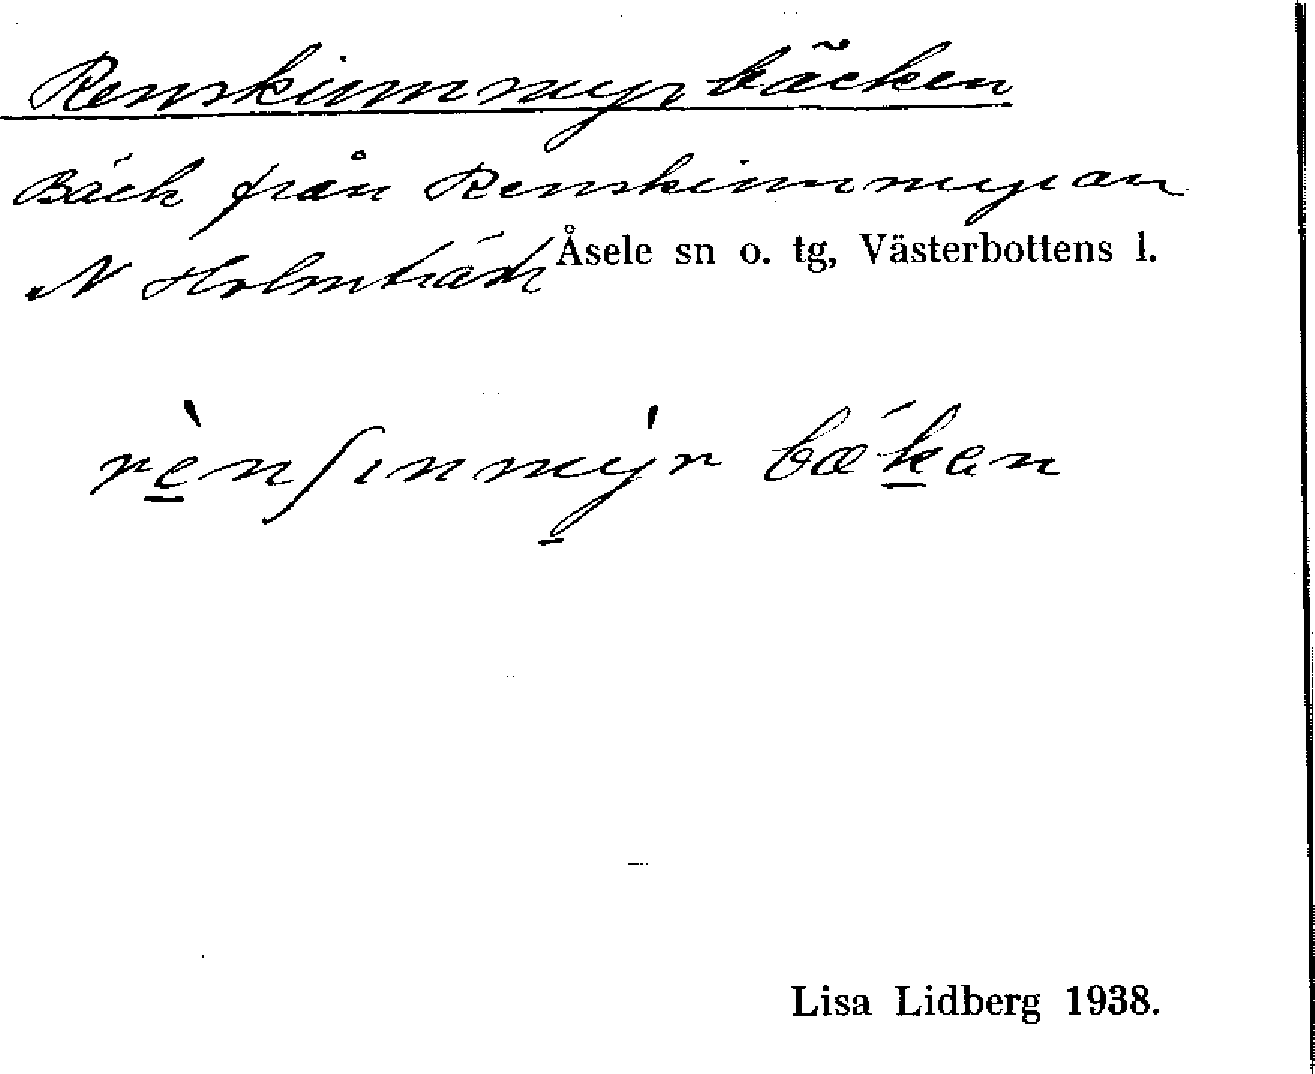 Renskinnmyrbäcken
Bäck från Renskinnmyran
N Holmträsk
Åsele sn o. tg, Västerbottens l.
rè̠nʃınmy̠̍r bæ´k̠en
Lisa Lidberg 1938.